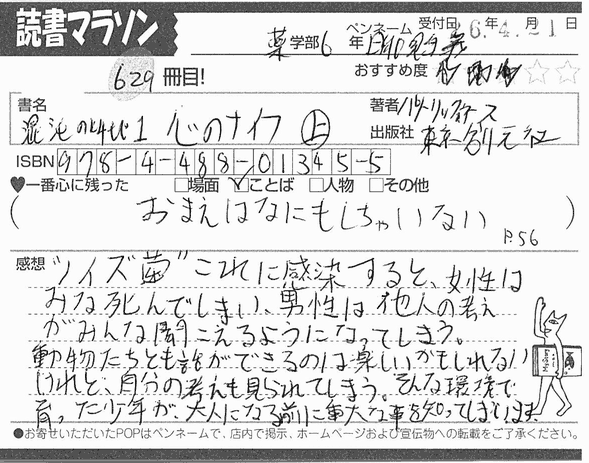 読書マラソン
薬学部6年 ペンネーム 受付日'16年4.月21日
629冊目! おすすめ度 ☆☆
書名 混沌の叫び1 心のナイフ 上 著者 パトリック・ネス
出版社 東京創元社
ISBN 978-4-488-01345-5
♥一番心に残った □場面 ☑ことば □人物 □その他
(おまえはなにもしちゃいない P.56)
感想 "ノイズ菌"これに感染すると、女性は
みな死んでしまい、男性は他人の考え
がみんな聞こえるようになってしまう。
動物たちとも話ができるのは楽しいかもしれない
けれど、自分の考えも見られてしまう。そんな環境で
育った少年が、大人になる前に重大な事を知ってしまいます。
●お寄せいただいたPOPはペンネームで、店内で掲示、ホームページおよび宣伝物への転載をご了承ください。